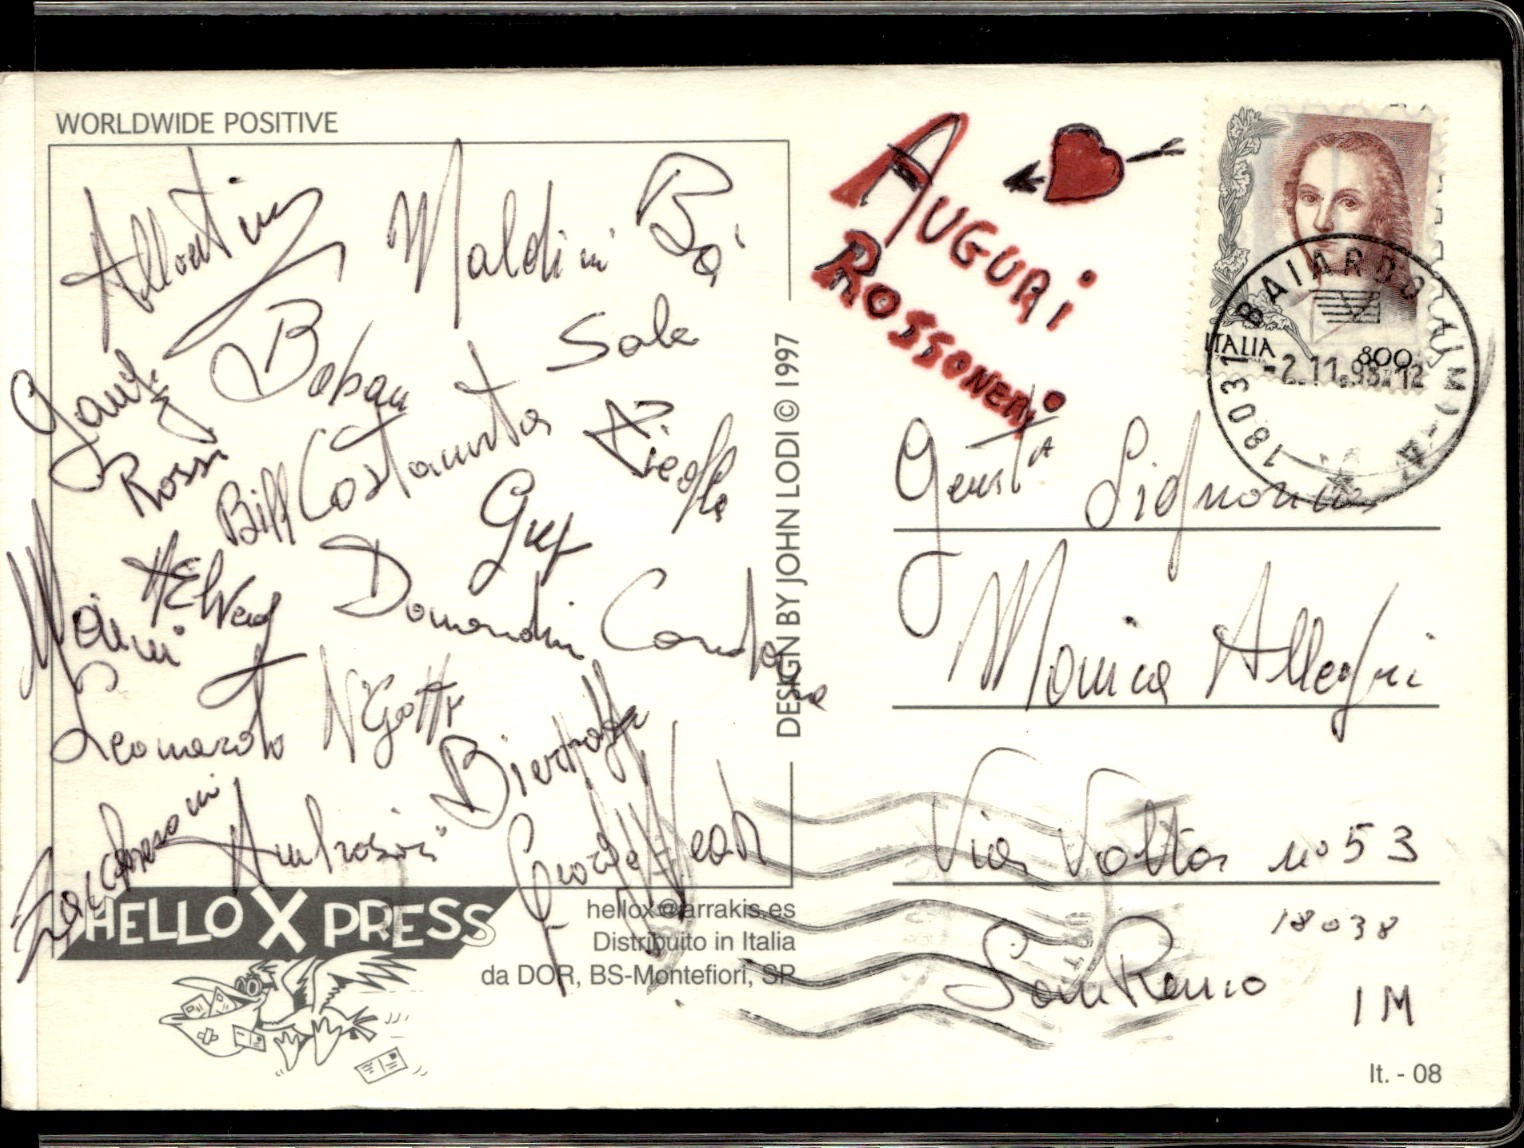 WORLDWIDE POSITIVE
Albertini Maldini Ba
Ganz Boban Sala
Rossi Billy Costacurta Ziege
Guly
Maini Helveg Donadoni Cardone
Leonardo N'Gotty
Bierhoff
Ambrosini George Weah
HELLO X PRESS
hellox@arrakis.es
Distribuito in Italia
da DOR, BS-Montefiori, SP
DESIGN BY JOHN LODI © 1997
AUGURI
ROSSONERI
ITALIA 800
18031 BAIARDO (IM) - A
-2.11.98.12
Gent.ma Signorina
Monica Allegri
Via Volta no 53
18038
San Remo
IM
It. - 08